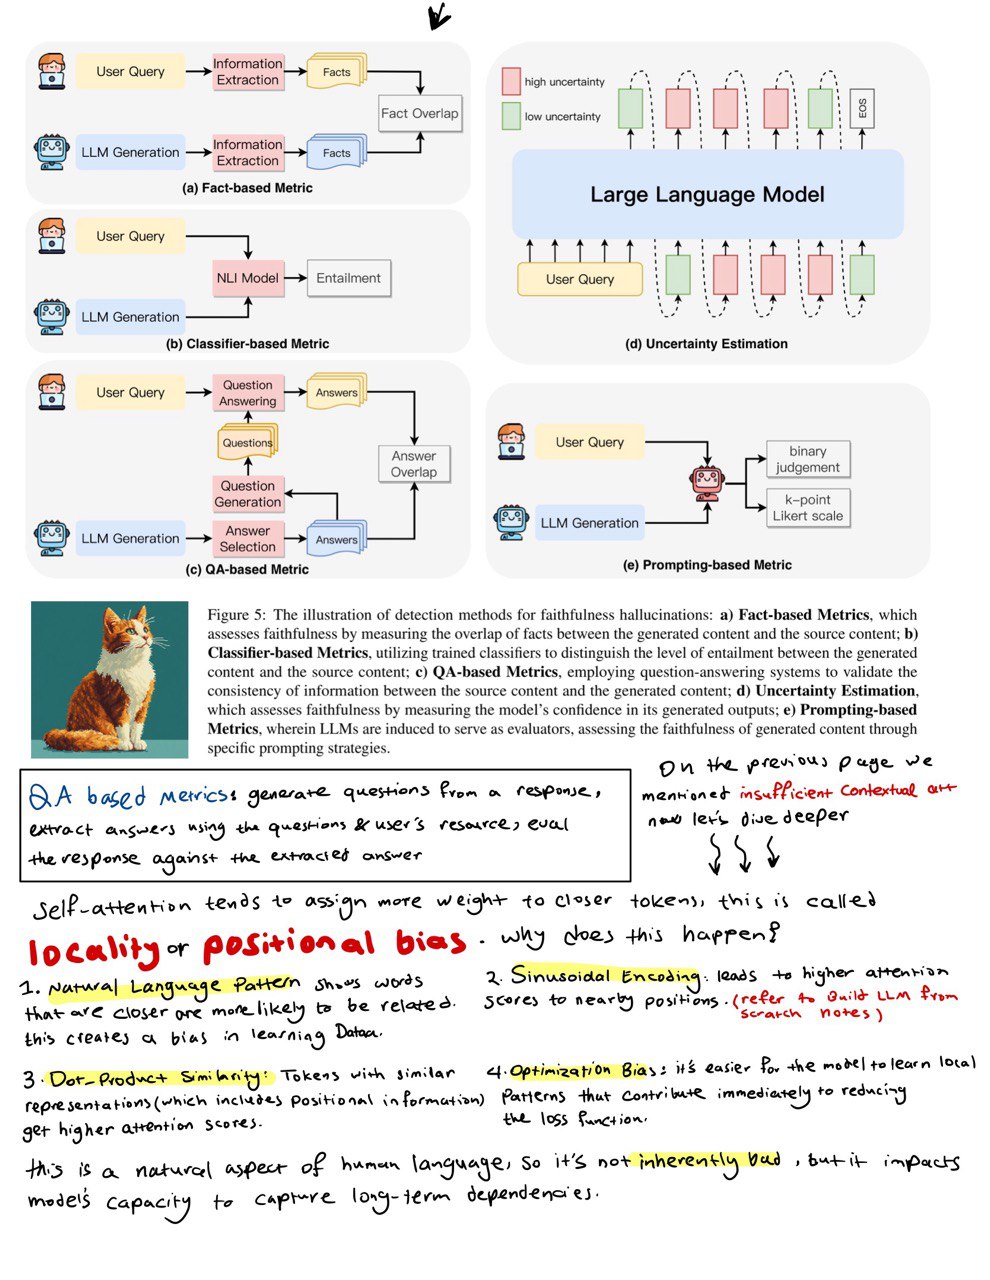 User Query
Information
Extraction
Facts
Fact Overlap
LLM Generation
Information
Extraction
Facts
(a) Fact-based Metric
User Query
NLI Model
Entailment
LLM Generation
(b) Classifier-based Metric
User Query
Question
Answering
Answers
Questions
Answer
Overlap
Question
Generation
LLM Generation
Answer
Selection
Answers
(c) QA-based Metric
high uncertainty
low uncertainty
EOS
Large Language Model
User Query
(d) Uncertainty Estimation
User Query
binary
judgement
k-point
Likert scale
LLM Generation
(e) Prompting-based Metric
Figure 5: The illustration of detection methods for faithfulness hallucinations: a) Fact-based Metrics, which
assesses faithfulness by measuring the overlap of facts between the generated content and the source content; b)
Classifier-based Metrics, utilizing trained classifiers to distinguish the level of entailment between the generated
content and the source content; c) QA-based Metrics, employing question-answering systems to validate the
consistency of information between the source content and the generated content; d) Uncertainty Estimation,
which assesses faithfulness by measuring the model's confidence in its generated outputs; e) Prompting-based
Metrics, wherein LLMs are induced to serve as evaluators, assessing the faithfulness of generated content through
specific prompting strategies.
QA based Metrics: generate questions from a response,
extract answers using the questions & user's resource, eval
the response against the extracted answer
On the previous page we
mentioned insufficient contextual att
now let's dive deeper
Self-attention tends to assign more weight to closer tokens, this is called
locality or positional bias. why does this happen?
1. Natural Language Pattern shows words
that are closer are more likely to be related.
this creates a bias in learning Dataa.
2. Sinusoidal Encoding: leads to higher attention
scores to nearby positions. (refer to Build LLM from
scratch notes)
3. Dot-Product Similarity: Tokens with similar
representations (which includes positional information)
get higher attention scores.
4. Optimization Bias: it's easier for the model to learn local
patterns that contribute immediately to reducing
the loss function.
this is a natural aspect of human language, so it's not inherently bad, but it impacts
model's capacity to capture long-term dependencies.